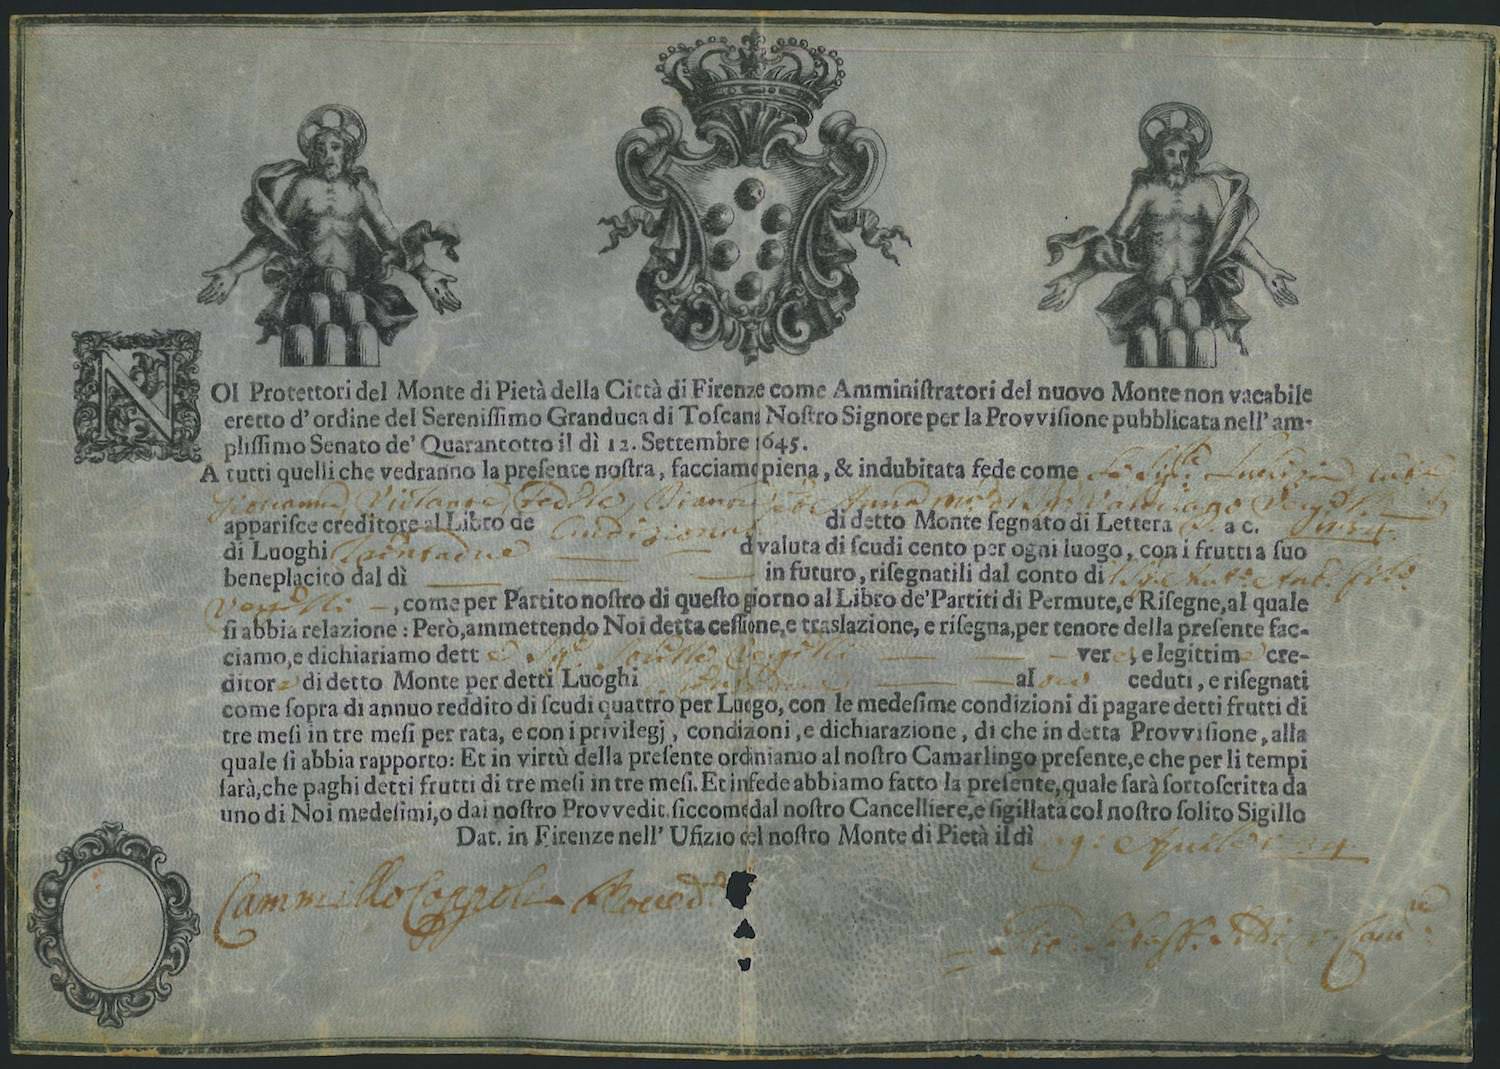 NOI Protettori del Monte di Pietà della Città di Firenze come Amministratori del nuovo Monte non vacabile
eretto d'ordine del Sereniſſimo Granduca di Toſcana Noſtro Signore per la Provviſione pubblicata nell'am-
pliſſimo Senato de' Quarantotto il dì 12. Settembre 1645.
A tutti quelli che vedranno la preſente noſtra, facciamo piena, & indubitata fede come
Giovanna, Violante
appariſce creditore al Libro de Condizionati di detto Monte ſegnato di Lettera a c.
di Luoghi Trentadue di valuta di ſcudi cento per ogni luogo, con i frutti a ſuo
beneplacito dal dì in futuro, riſegnatili dal conto di
, come per Partito noſtro di queſto giorno al Libro de' Partiti di Permute, e Riſegne, al quale
ſi abbia relazione: Però, ammettendo Noi detta ceſſione, e traslazione, e riſegna, per tenore della preſente fac-
ciamo, e dichiariamo dett ver , e legittim cre-
ditor di detto Monte per detti Luoghi al ceduti, e riſegnati
come ſopra di annuo reddito di ſcudi quattro per Luogo, con le medeſime condizioni di pagare detti frutti di
tre meſi in tre meſi per rata, e con i privilegj, condizioni, e dichiarazione, di che in detta Provviſione, alla
quale ſi abbia rapporto: Et in virtù della preſente ordiniamo al noſtro Camarlingo preſente, e che per li tempi
ſarà, che paghi detti frutti di tre meſi in tre meſi. Et in fede abbiamo fatto la preſente, quale ſarà ſottoſcritta da
uno di Noi medeſimi, o dal noſtro Provvedit. ſiccome dal noſtro Cancelliere, e ſigillata col noſtro ſolito Sigillo
Dat. in Firenze nell' Ufizio del noſtro Monte di Pietà il dì
Cammillo Coppoli Proved.re